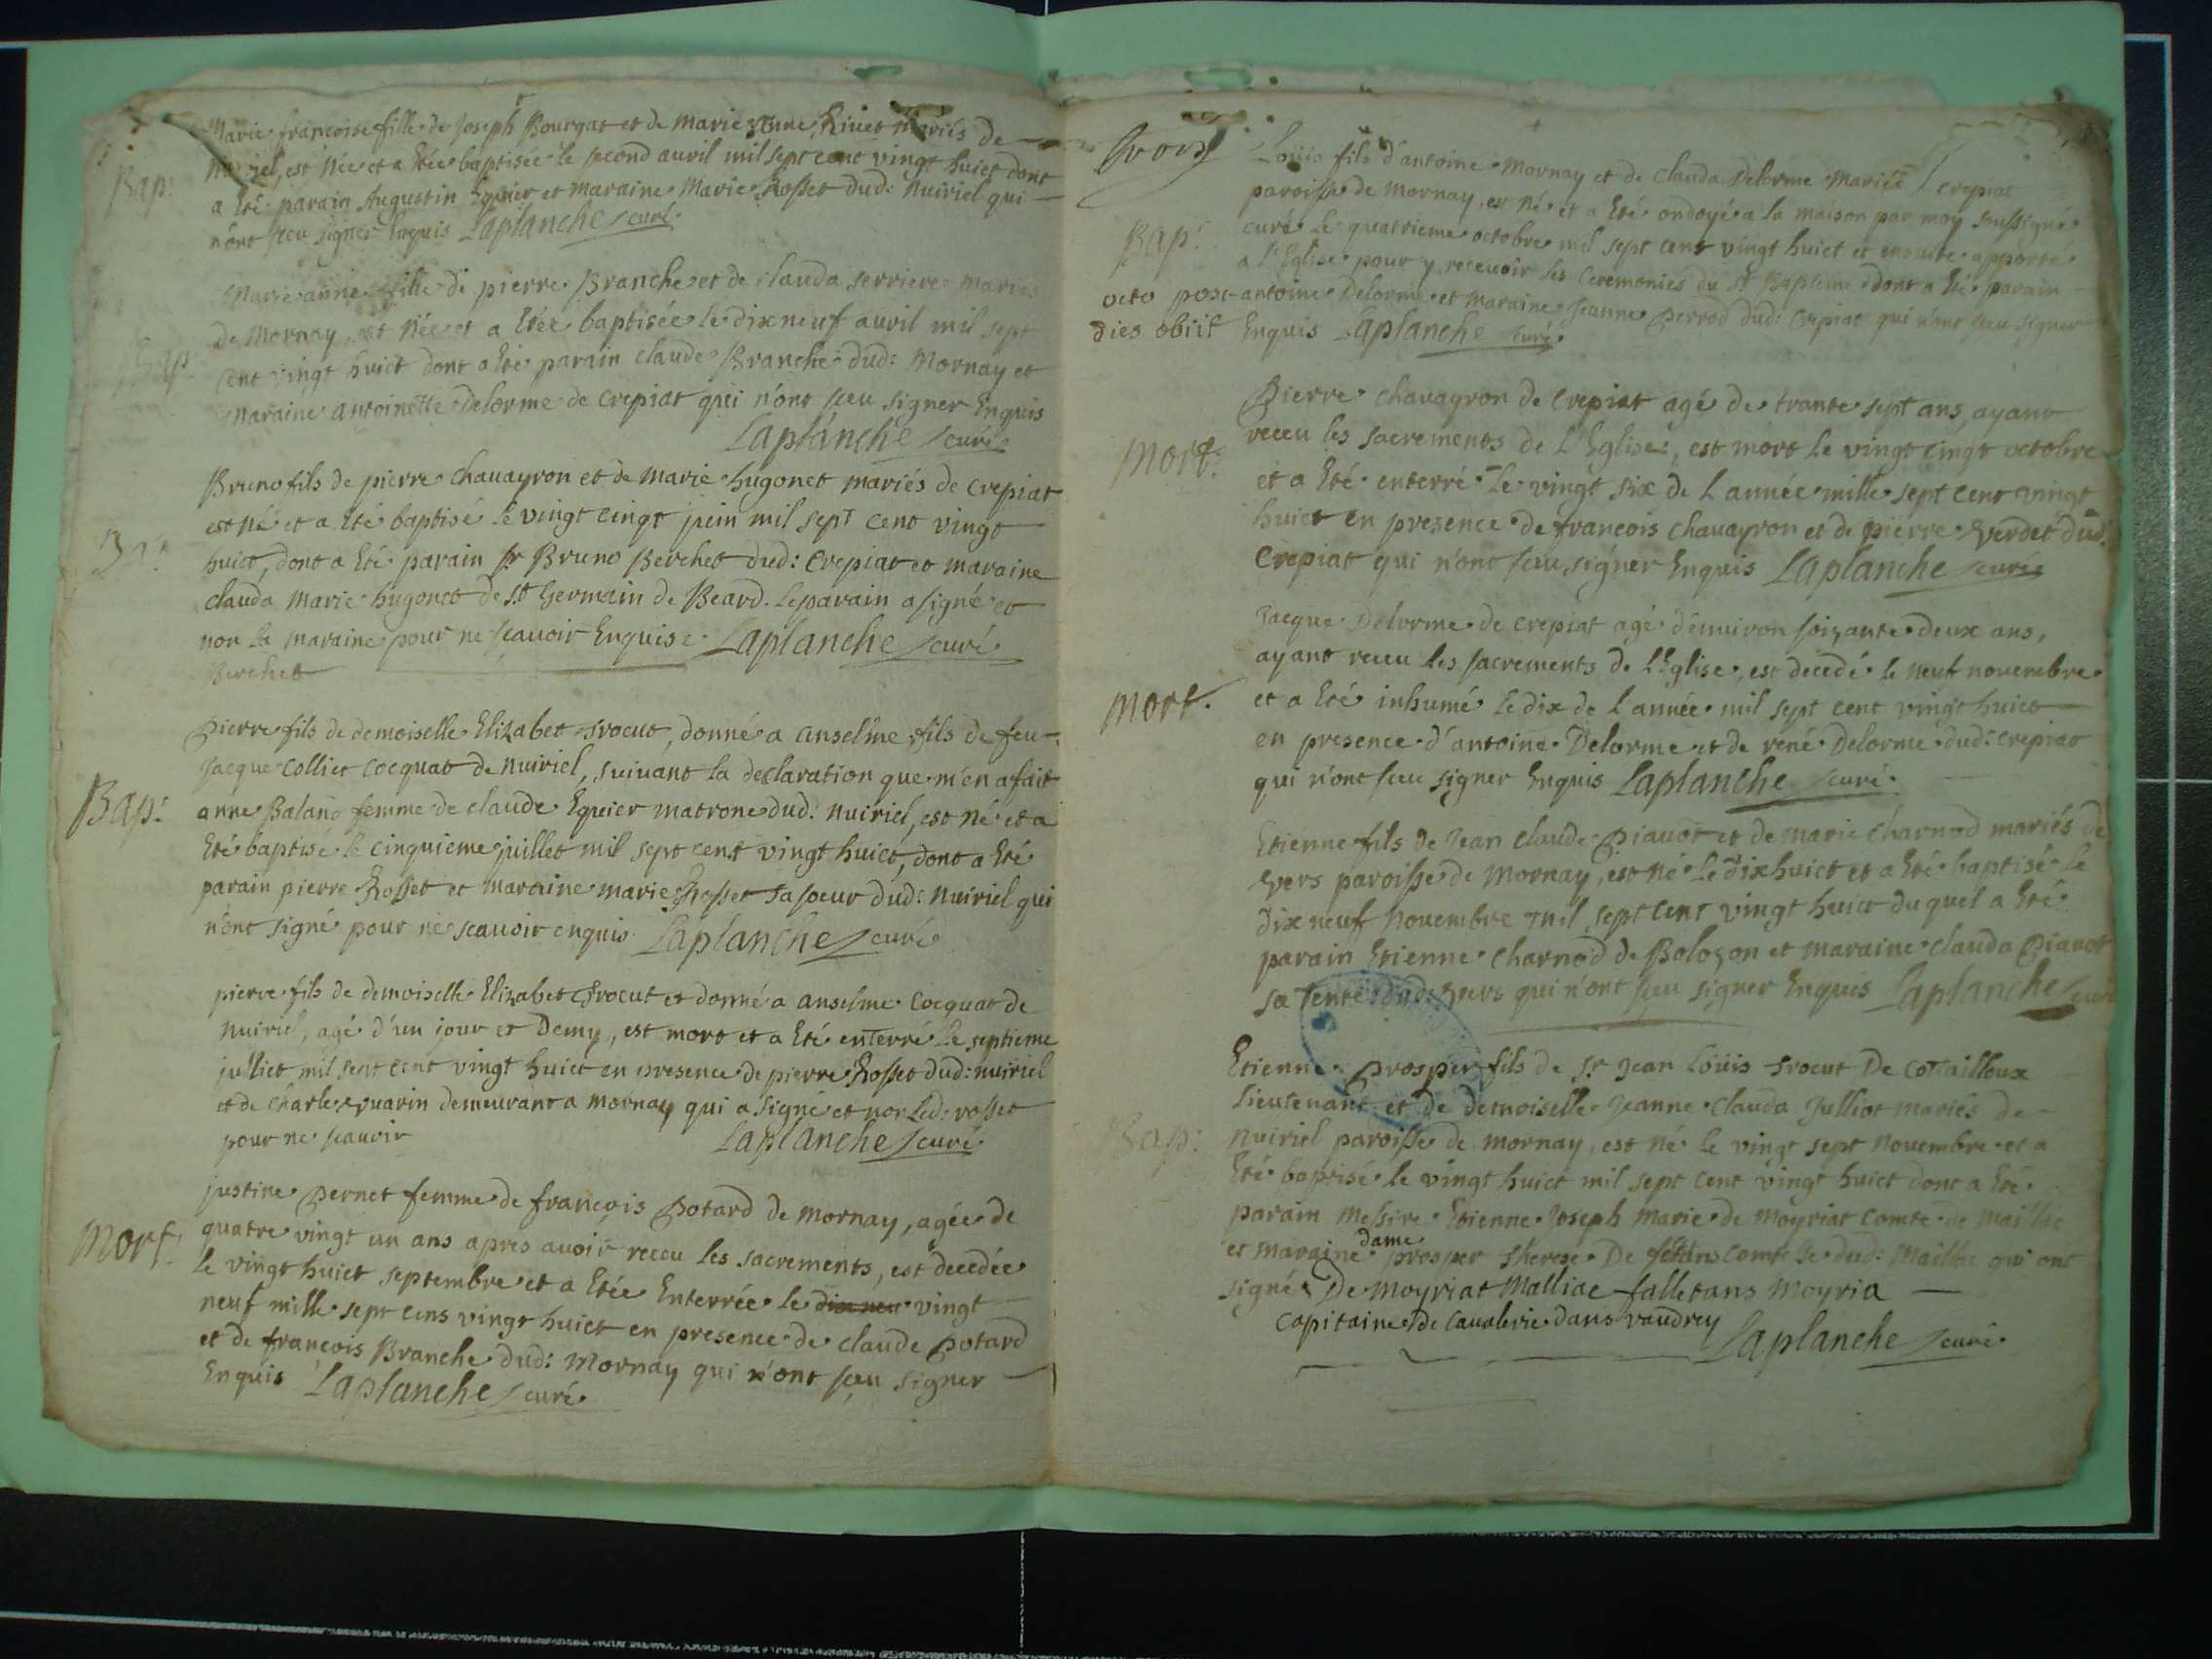 Marie francoise fille de Joseph Bourgat et de marie anne Rivet mariés de
Nuiriel, est Née et a Etée baptisée le second auril mil sept cent vingt huict dont
Bap:
a Eté parain Augustin Equier et maraine Marie Rosset dud: Nuiriel qui
n'ont sceu signer Enquis Laplanche curé
Marie anne fille de pierre Branche et de clauda serriere mariés
de Mornay, est Née et a Etée baptisée le dix neuf auril mil sept
Bap:
cent vingt huict dont a Eté parain claude Branche dud: Mornay et
Maraine antoinette Delorme de crepiat qui n'ont sceu signer Enquis
Laplanche curé
Bruno fils de pierre chauayron et de marie hugonet mariés de crepiat
est né et a Eté baptisé le vingt cinqt juin mil sept cent vingt
huict, dont a Eté parain sr Bruno Berchet dud: crepiat et maraine
clauda Marie hugonet de st Germain de Beard. Le parain a signé et
non la maraine pour ne scauoir Enquise. Laplanche curé
Berchet
pierre fils de demoiselle Elizabet trocut, donné a anselme fils de feu
Jacque colliet cocquat de nuiriel, suiuant la declaration que m'en a fait
Bap:
anne Baland femme de claude Equier matrone dud: nuiriel, est né et a
Eté baptisé le cinquieme juillet mil sept cent vingt huict, dont a Eté
parain pierre Rosset et maraine marie Rosset sa soeur dud: nuiriel qui
n'ont signé pour ne scauoir enquis Laplanche curé
pierre fils de demoiselle Elizabet trocut et donné a anselme cocquat de
nuiriel, agé d'un jour et Demy, est mort et a Eté enterré le septieme
julliet mil sept cent vingt huict en presence de pierre Rosset dud: nuiriel
et de charle euuarin demeurant a mornay qui a signé et non led: rosset
pour ne scauoir Laplanche curé
justine pernet femme de francois potard de mornay, agée de
Mort.
quatre vingt un ans apres auoir receu les sacrements, est decedée
le vingt huict septembre et a Etée Enterrée le dix neu vingt
neuf mille sept cens vingt huict en presence de claude potard
et de francois Branche dud: Mornay qui n'ont sceu signer
Enquis Laplanche curé
Louis fils d'antoine mornay et de clauda Delorme mariés crepiat
paroisse de mornay, est né et a Eté ondoyé a la maison par moy soussigné
curé Le quatrieme octobre mil sept cent vingt huict et ensuite apporté
Bap:
a l'Eglise pour y receuoir les ceremonies du st Bapteme dont a Eté parain
octo post antoine Delorme et maraine jeanne perrod dud: crepiat qui n'ont sceu signer
dies obiit Enquis Laplanche curé
Pierre chauayron de crepiat agé de trante sept ans, ayant
receu les sacrements de l'Eglise, est mort le vingt cinqt octobre
Mort.
et a Eté enterré Le vingt six de l année mille sept cent vingt
huict en presence de francois chauayron et de pierre verdet dud:
crepiat qui n'ont sceu signer Enquis Laplanche curé
Jacque Delorme de crepiat agé d'enuiron soizante deux ans,
ayant receu les sacrements de l'Eglise, est decedé le neuf nouembre
mort.
et a Eté inhumé Le dix de l année mil sept cent vingt huict
en presence d'antoine Delorme et de rené Delorme dud: crepiat
qui n'ont sceu signer Enquis Laplanche curé
Etienne fils de Jean claude piauot et de marie charnod mariés de
vers paroisse de mornay, est né le dix huict et a Eté baptisé le
dix neuf nouembre mil sept cent vingt huict du quel a Eté
parain Etienne charnod de Bolozon et maraine clauda piauot
sa tente dud: vers qui n'ont sceu signer Enquis Laplanche curé
Etienne prosper fils de sr Jean Loüis trocut De cotailloux
Lieutenant et de demoiselle Jeanne clauda Julliot mariés de
Bap:
nuiriel paroisse de mornay, est né le vingt sept nouembre et a
Eté baptisé le vingt huict mil sept cent vingt huict dont a Eté
parain Messire Etienne Joseph Marie de moyriat comte de maillac
dame
et maraine prosper therese De comtesse dud: Maillac qui ont
signé De Moyriat Malliac falletans Moyria
capitaine de caualerie dans vaudrey
Laplanche curé